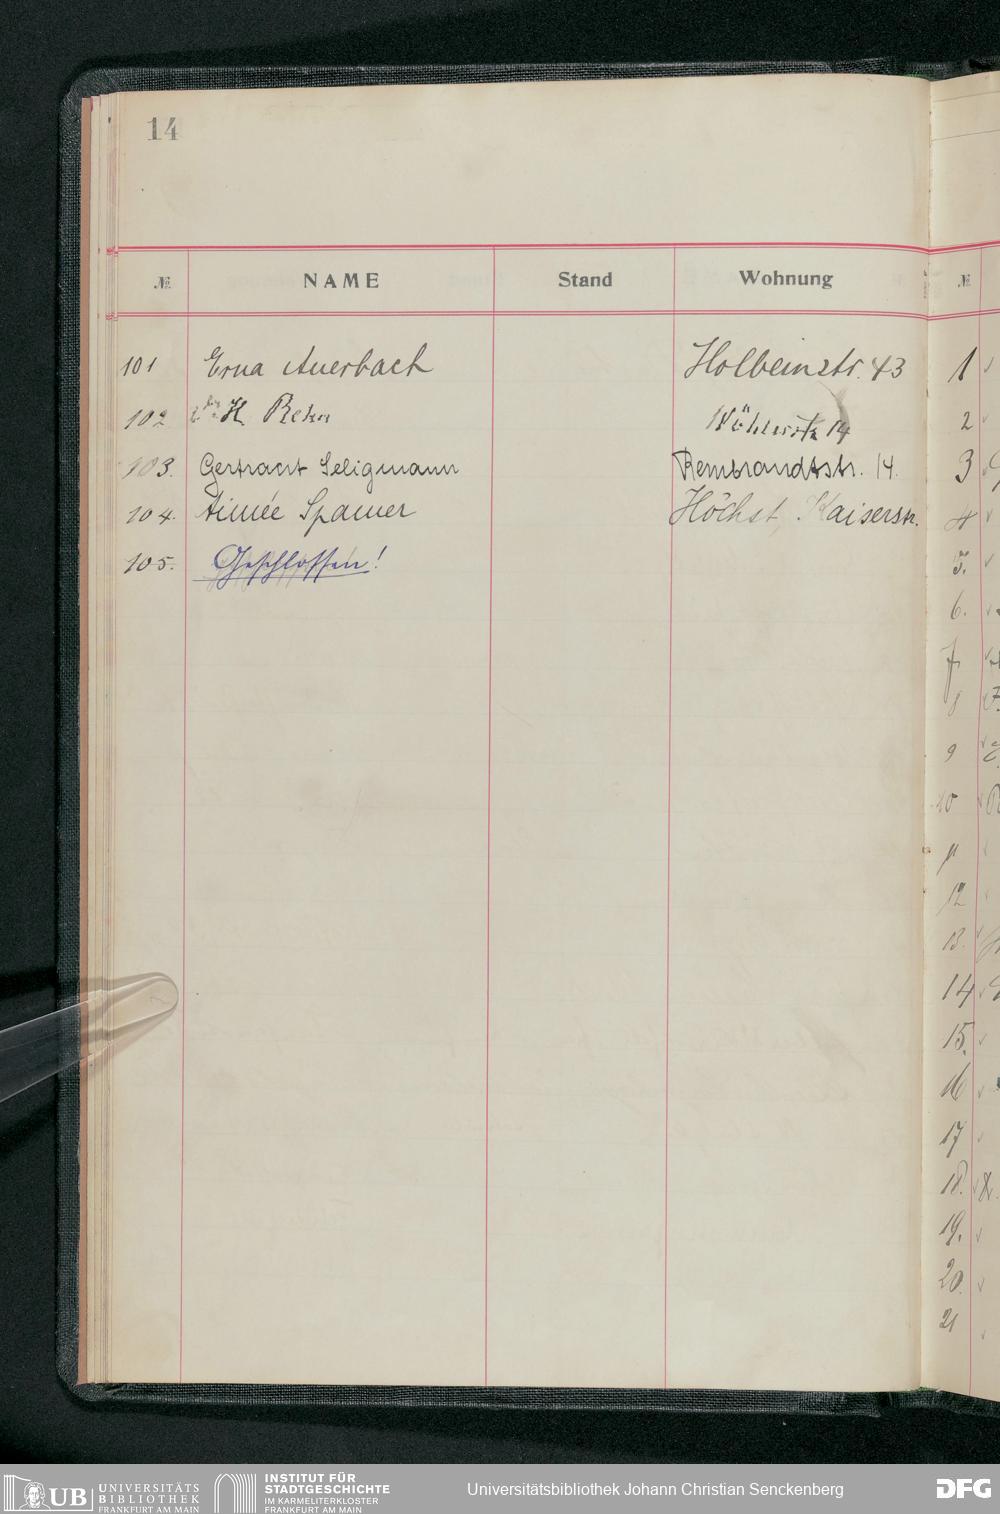 14
№ NAME Stand Wohnung
101 Erna Auerbach Holbeinstr. 43
102 H. Rehn 14
103. Gertraut Seligmann Rembrandtstr. 14.
104. Aimée Spamer Höchst, Kaiserstr.
105. Geschlossen!
№
1
2
3
4
5.
6.
7.
8
9
10
11
12
13.
14
15.
16
17
18.
19.
20.
21
UB UNIVERSITÄTS
BIBLIOTHEK
FRANKFURT AM MAIN
INSTITUT FÜR
STADTGESCHICHTE
IM KARMELITERKLOSTER
FRANKFURT AM MAIN
Universitätsbibliothek Johann Christian Senckenberg
DFG